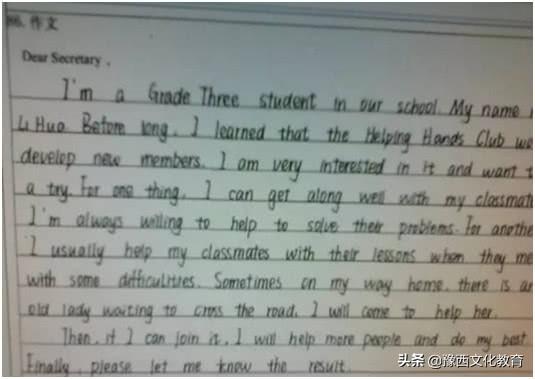 86. 作文
Dear Secretary,
I'm a Grade Three student in our school. My name
Li Hua. Before long, I learned that the Helping Hands Club
develop new members. I am very interested in it and want
a try. For one thing, I can get along well with my
I'm always willing to help to solve their problems. For
I usually help my classmates with their lessons when they
with some difficultires. Sometimes on my way home, there is
old lady waiting to cross the road, I will come to help her.
Then, if I can join it, I will help more people and do my best.
Finally, please let me know the result.
头条 @豫西文化教育